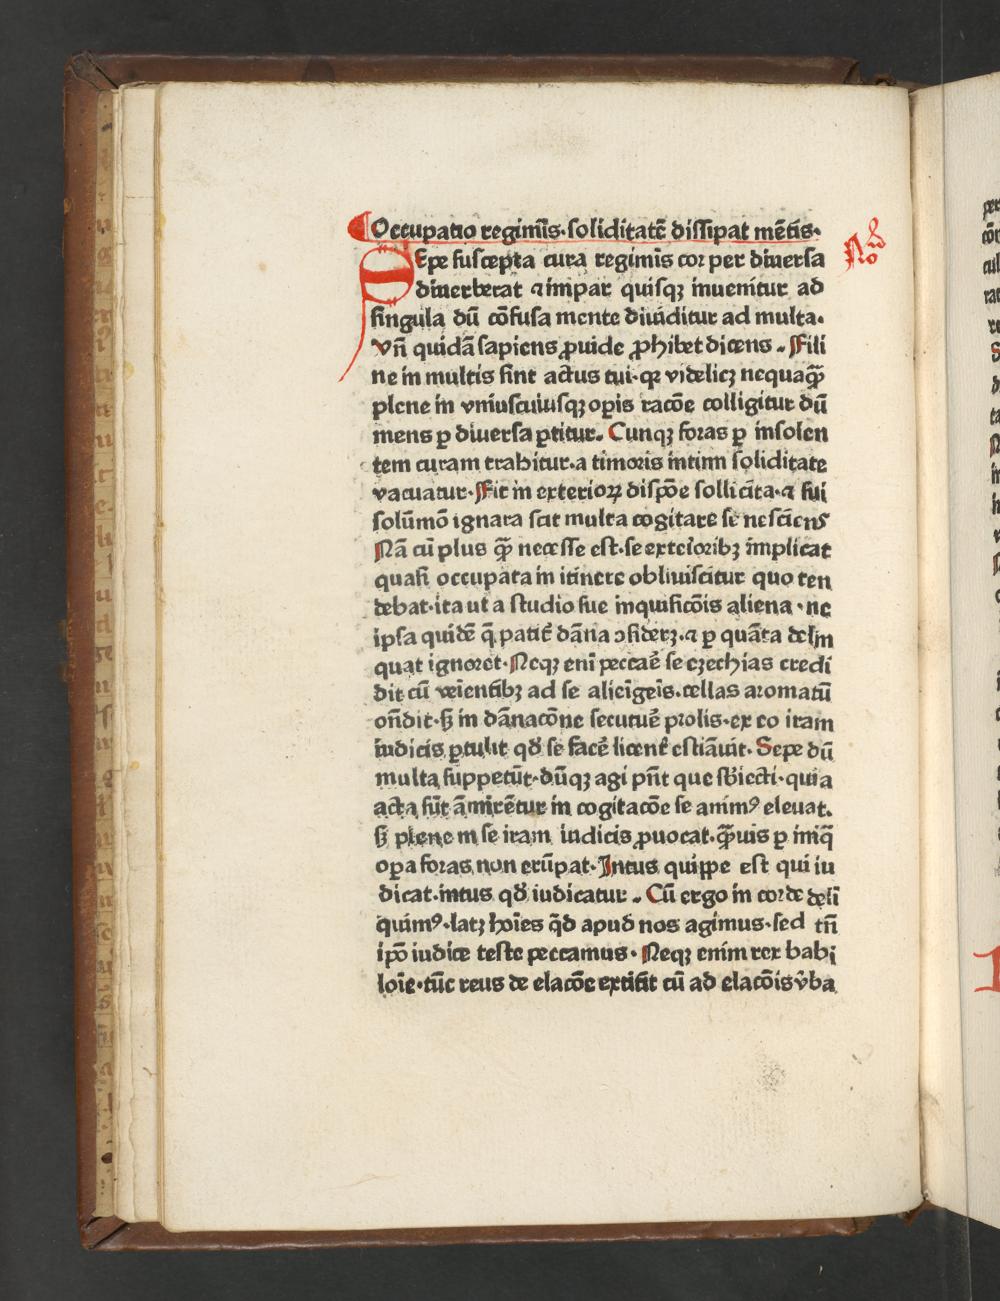 Occupatio regimīs·soliditatē dissipat mētis·
SEpe suscepta cura regimīs cor per diuersa
diuerberat ⁊ impar quisqꝫ inuenitur ad
singula dū cōfusa mente diuiditur ad multa·
vn̄ quidā sapiens ꝓuide ꝓhibet dicens . Fili
ne in multis sint actus tui·qꝛ videlicꝫ nequaqꝫ̄
plene in vniuscuiusqꝫ oꝑis racōe colligitur dū
mens ꝑ diuersa ꝑtitur. Cunqꝫ foras ꝑ insolen
tem curam trahitur.a timoris intimi soliditate
vacuatur·Fit in exterioꝝ dispōe sollicita·⁊ sui
solūmō ignara scit multa cogitare se nesciens
Nā cū plus qꝫ̄ necesse est·se exterioribꝫ implicat
quasi occupata in itinere obliuiscitur quo ten
debat·ita ut a studio sue inquisicōis aliena·ne
ipsa quidē q̄ patit᷑ dāna ↄsideret·⁊ ꝑ quāta delin
quat ignoret·Neqꝫ enī peccaē se ezechias credi
dit cū veīentibꝫ ad se aliēigeīs.cellas aromatū
on̄dit·sꝫ in dānacōne secutuē prolis·ex eo iram
iudicis ꝑtulit qđ se facē licent᷑ estiāuit· Sepe dū
multa suppetūt·dūqꝫ agi pn̄t que sb̄iecti·quia
acta sūt āmirētur in cogitacōe se animꝰ eleuat.
sꝫ plene in se iram iudicis ꝓuocat·qꝫ̄uis ꝑ iniq̄
oꝑa foras non erūpat·Intus quippe est qui iu
dicat·intus qđ iudicatur . Cū ergo in corde deli
quimꝰ·latꝫ hoīes qđ apud nos agimus·sed tn̄
ipō iudice teste peccamus· Neqꝫ enim rex babi
loīe·tūc reus de elacōe extitit cū ad elacōis v̄ba
No